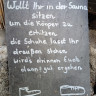 Wollt Ihr in der Sauna
sitzen
um die Körper zu
erhitzen,
die Schuhe lasst Ihr
draußen stehn
wird's diesen Euch
dann gut ergehen